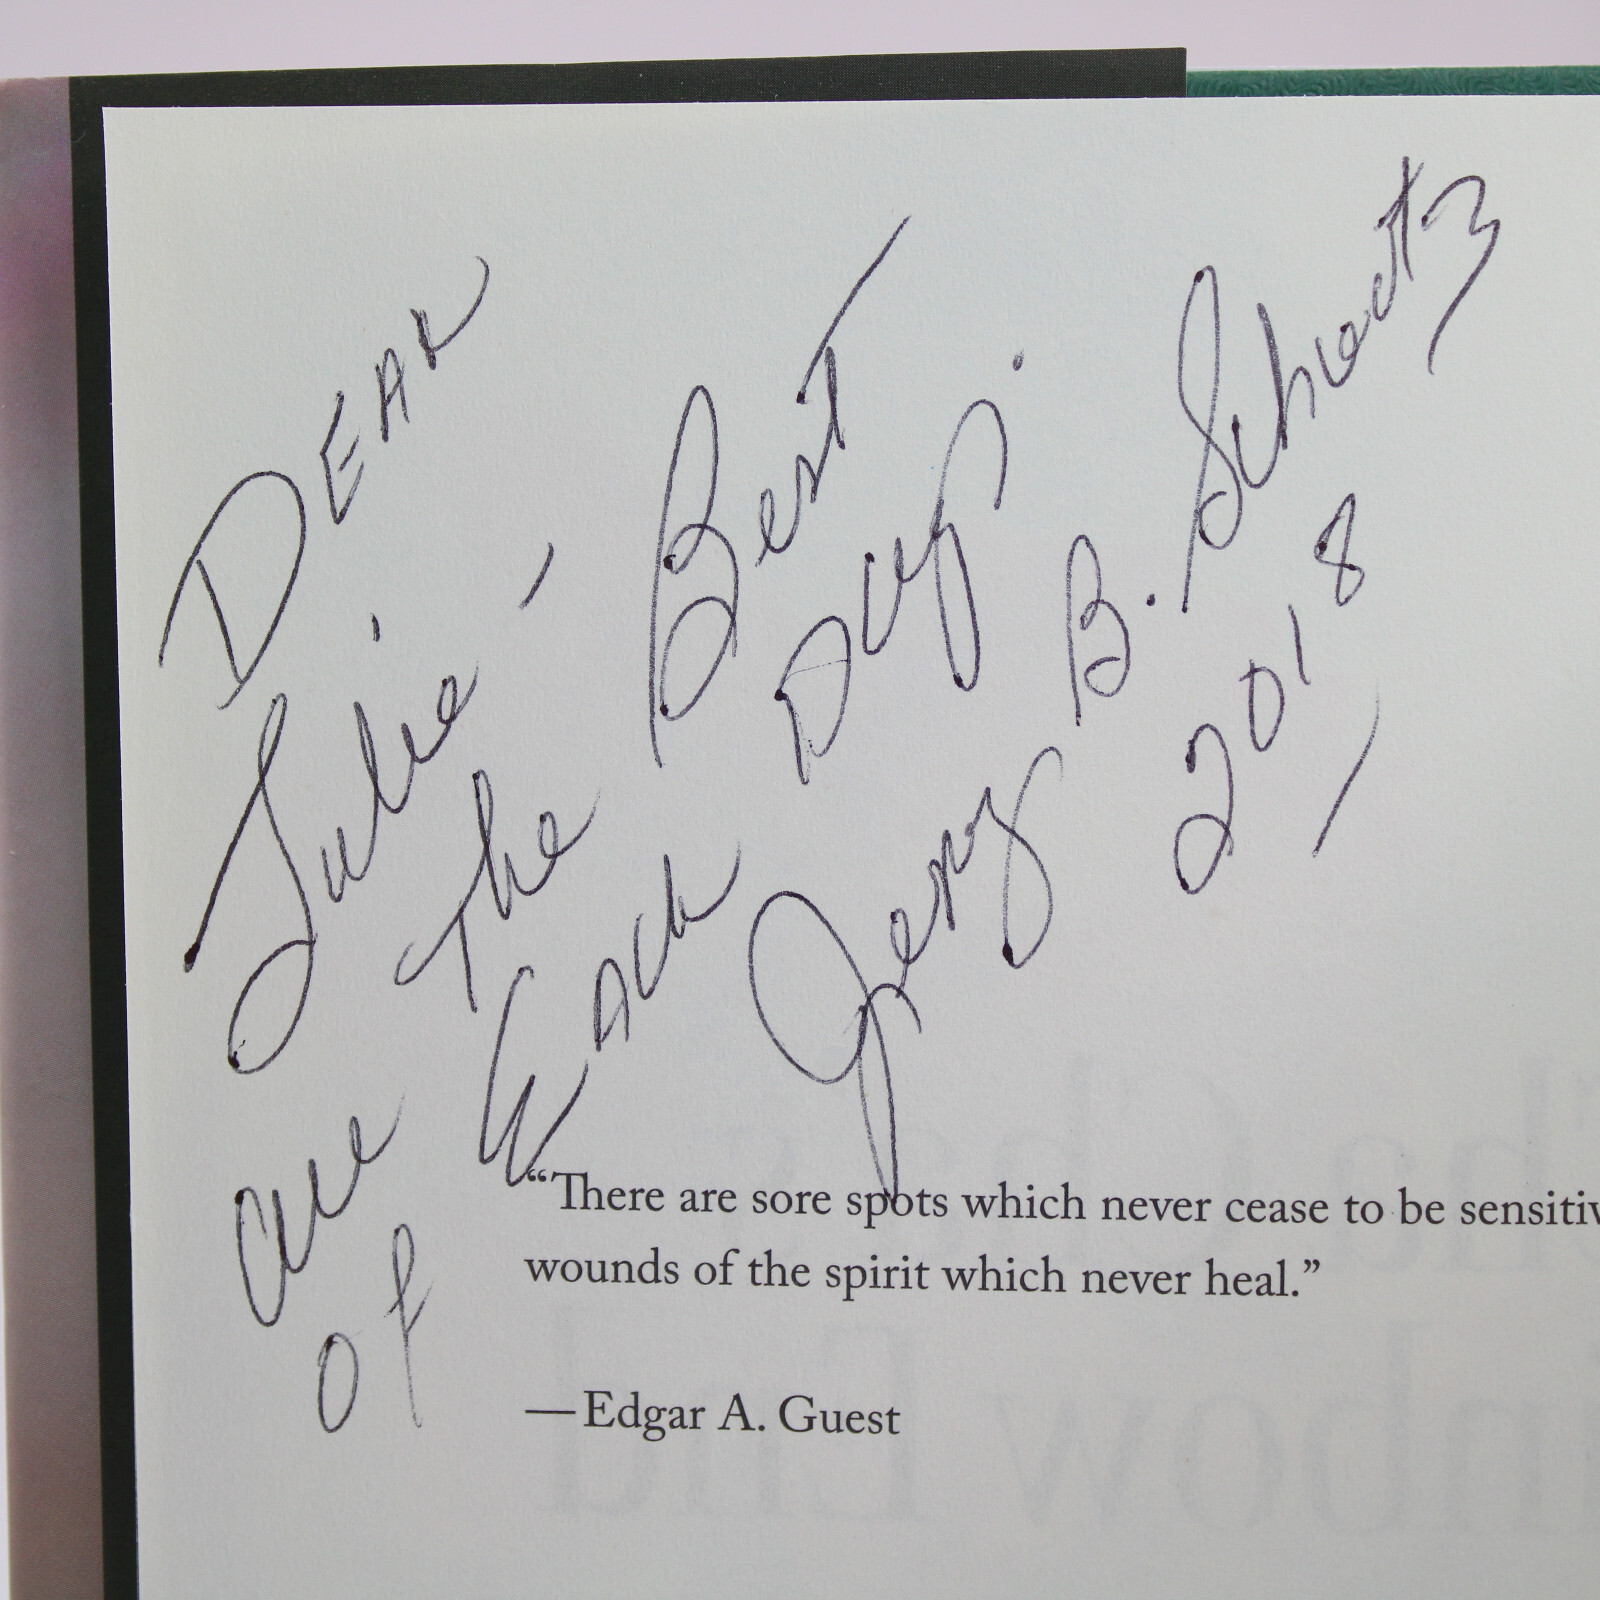 DEAR
Julie -
All The Best
of Each Day.
Jerry B. Schwartz
2018
“There are sore spots which never cease to be sensitiv
wounds of the spirit which never heal.”
—Edgar A. Guest